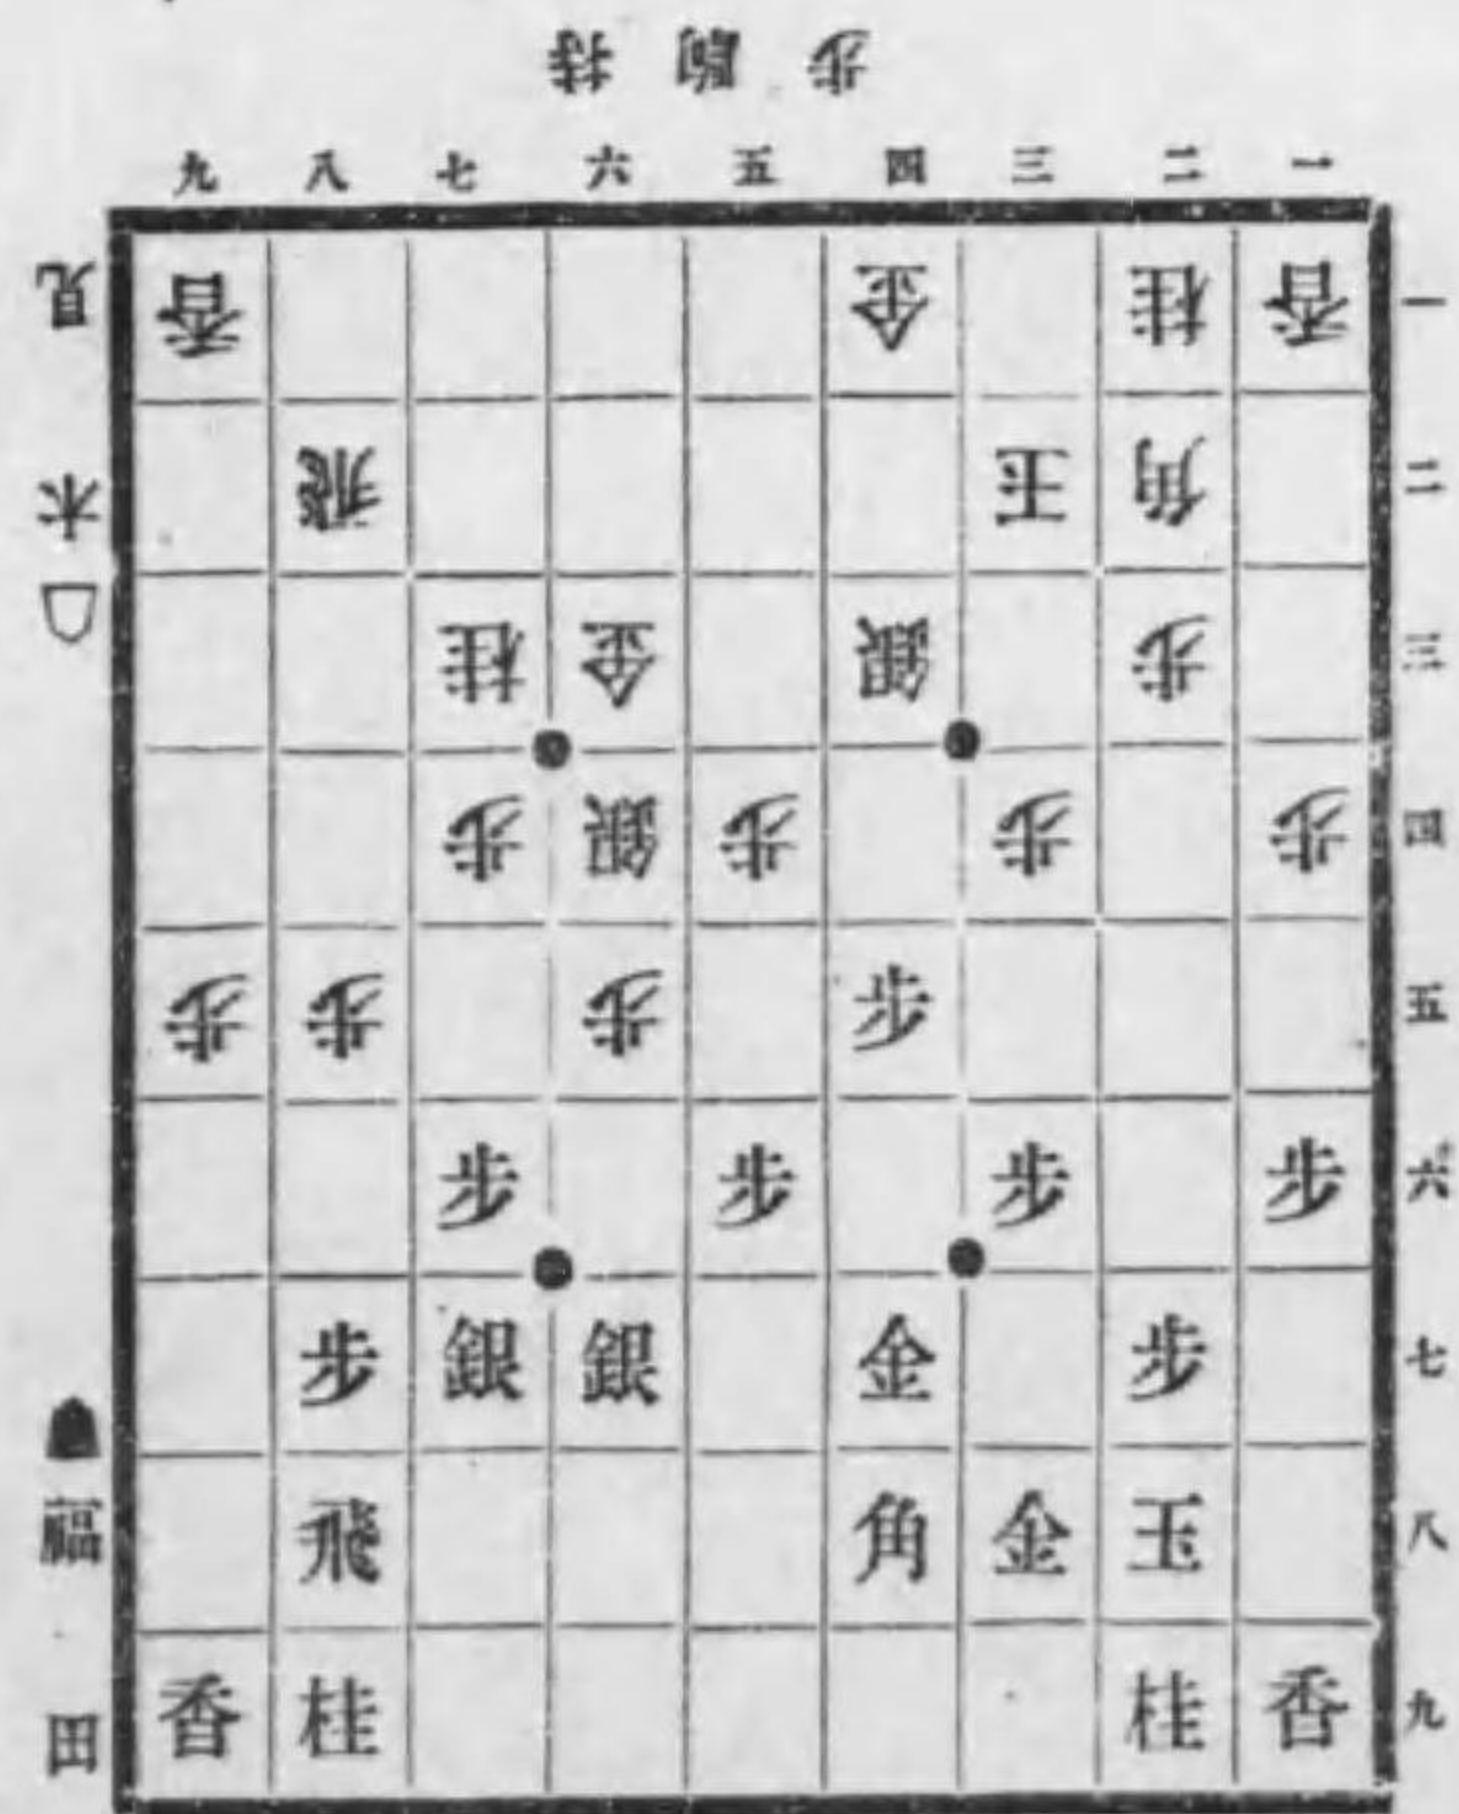 持駒歩
九八七六五四三二一
香金桂香一
飛王角二
桂金銀歩三
歩銀歩歩歩四
歩歩歩歩五
歩歩歩歩六
歩銀銀金歩七
飛角金玉八
香桂桂香九
△木見
▲福田